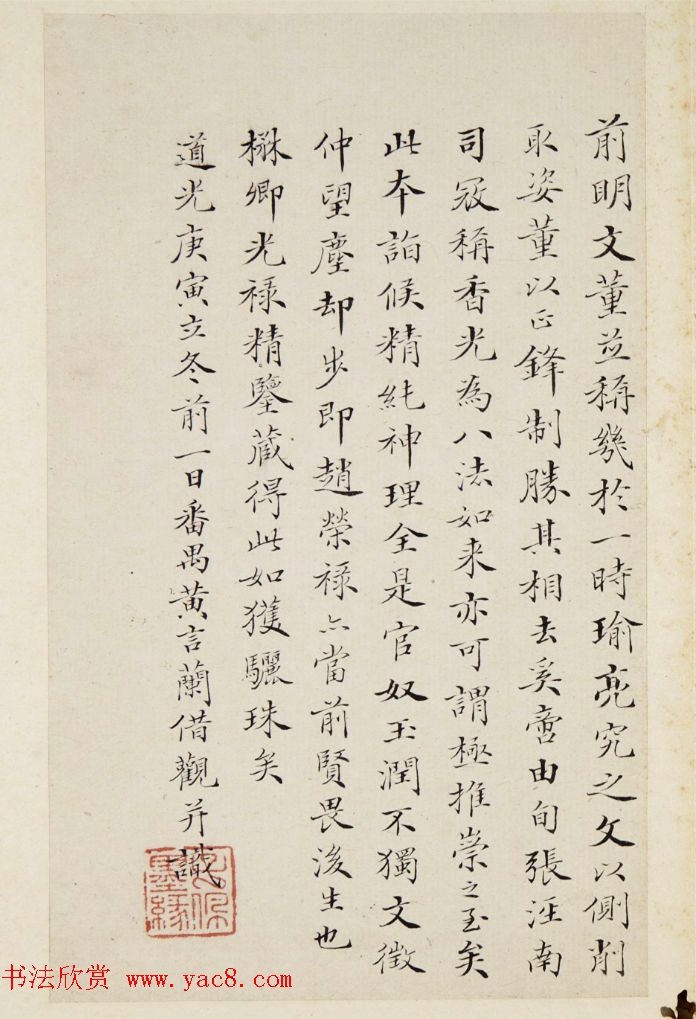 前明文董並稱幾於一時瑜亮究之文以側削
取姿董以正鋒制勝其相去奚啻由旬張涇南
司寇稱香光為八法如来亦可謂極推崇之至矣
此本詣候精純神理全是官奴玉潤不獨文徵
仲望塵却步即趙榮禄亦當前賢畏後生也
楙卿光禄精鑒藏得此如獲驪珠矣
道光庚寅立冬前一日番禺黄言蘭借觀并識
墨緣
书法欣赏 www.yac8.com